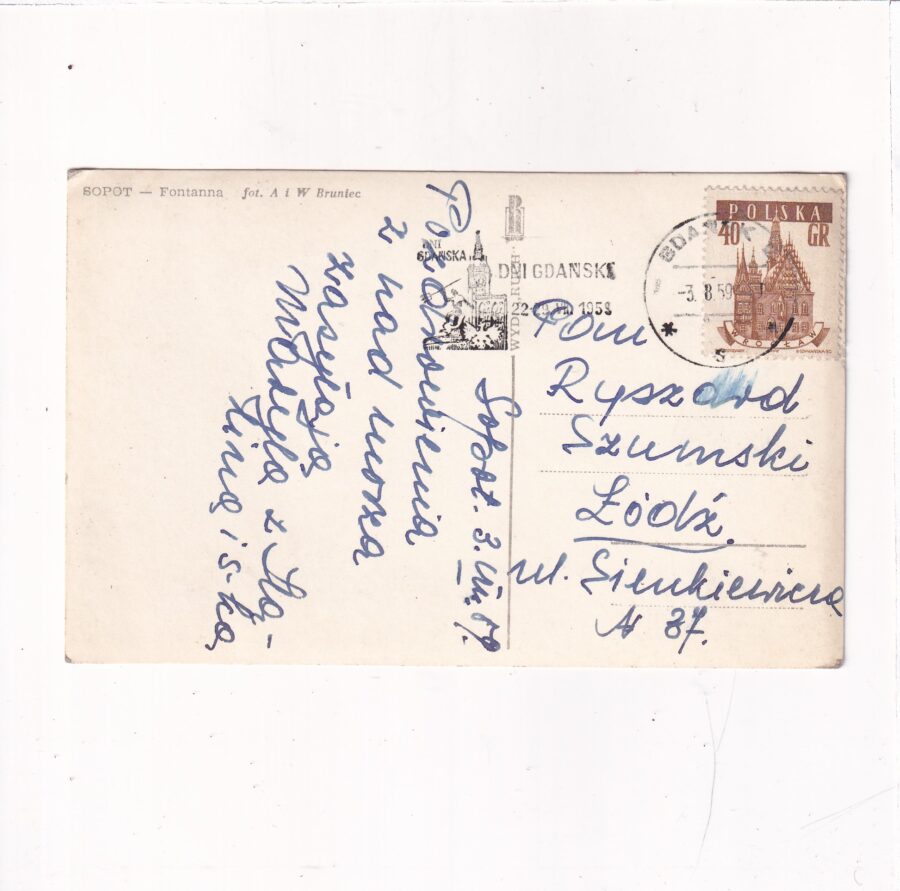 SOPOT — Fontanna fot. A i W Bruniec
Sopot. 3.VIII.59.
Pozdrowienia
z nad morza
zasyłają
Maryla z Ha-
liną i s-ką
WYD. RUCH
DNI
GDAŃSKA
DNI GDAŃSKA
1958
GDAŃSK
-3.8.59
POLSKA
40 GR
WROCŁAW
Pan
Ryszard
Szumski
Łódź.
ul. Sienkiewicza
N 37.